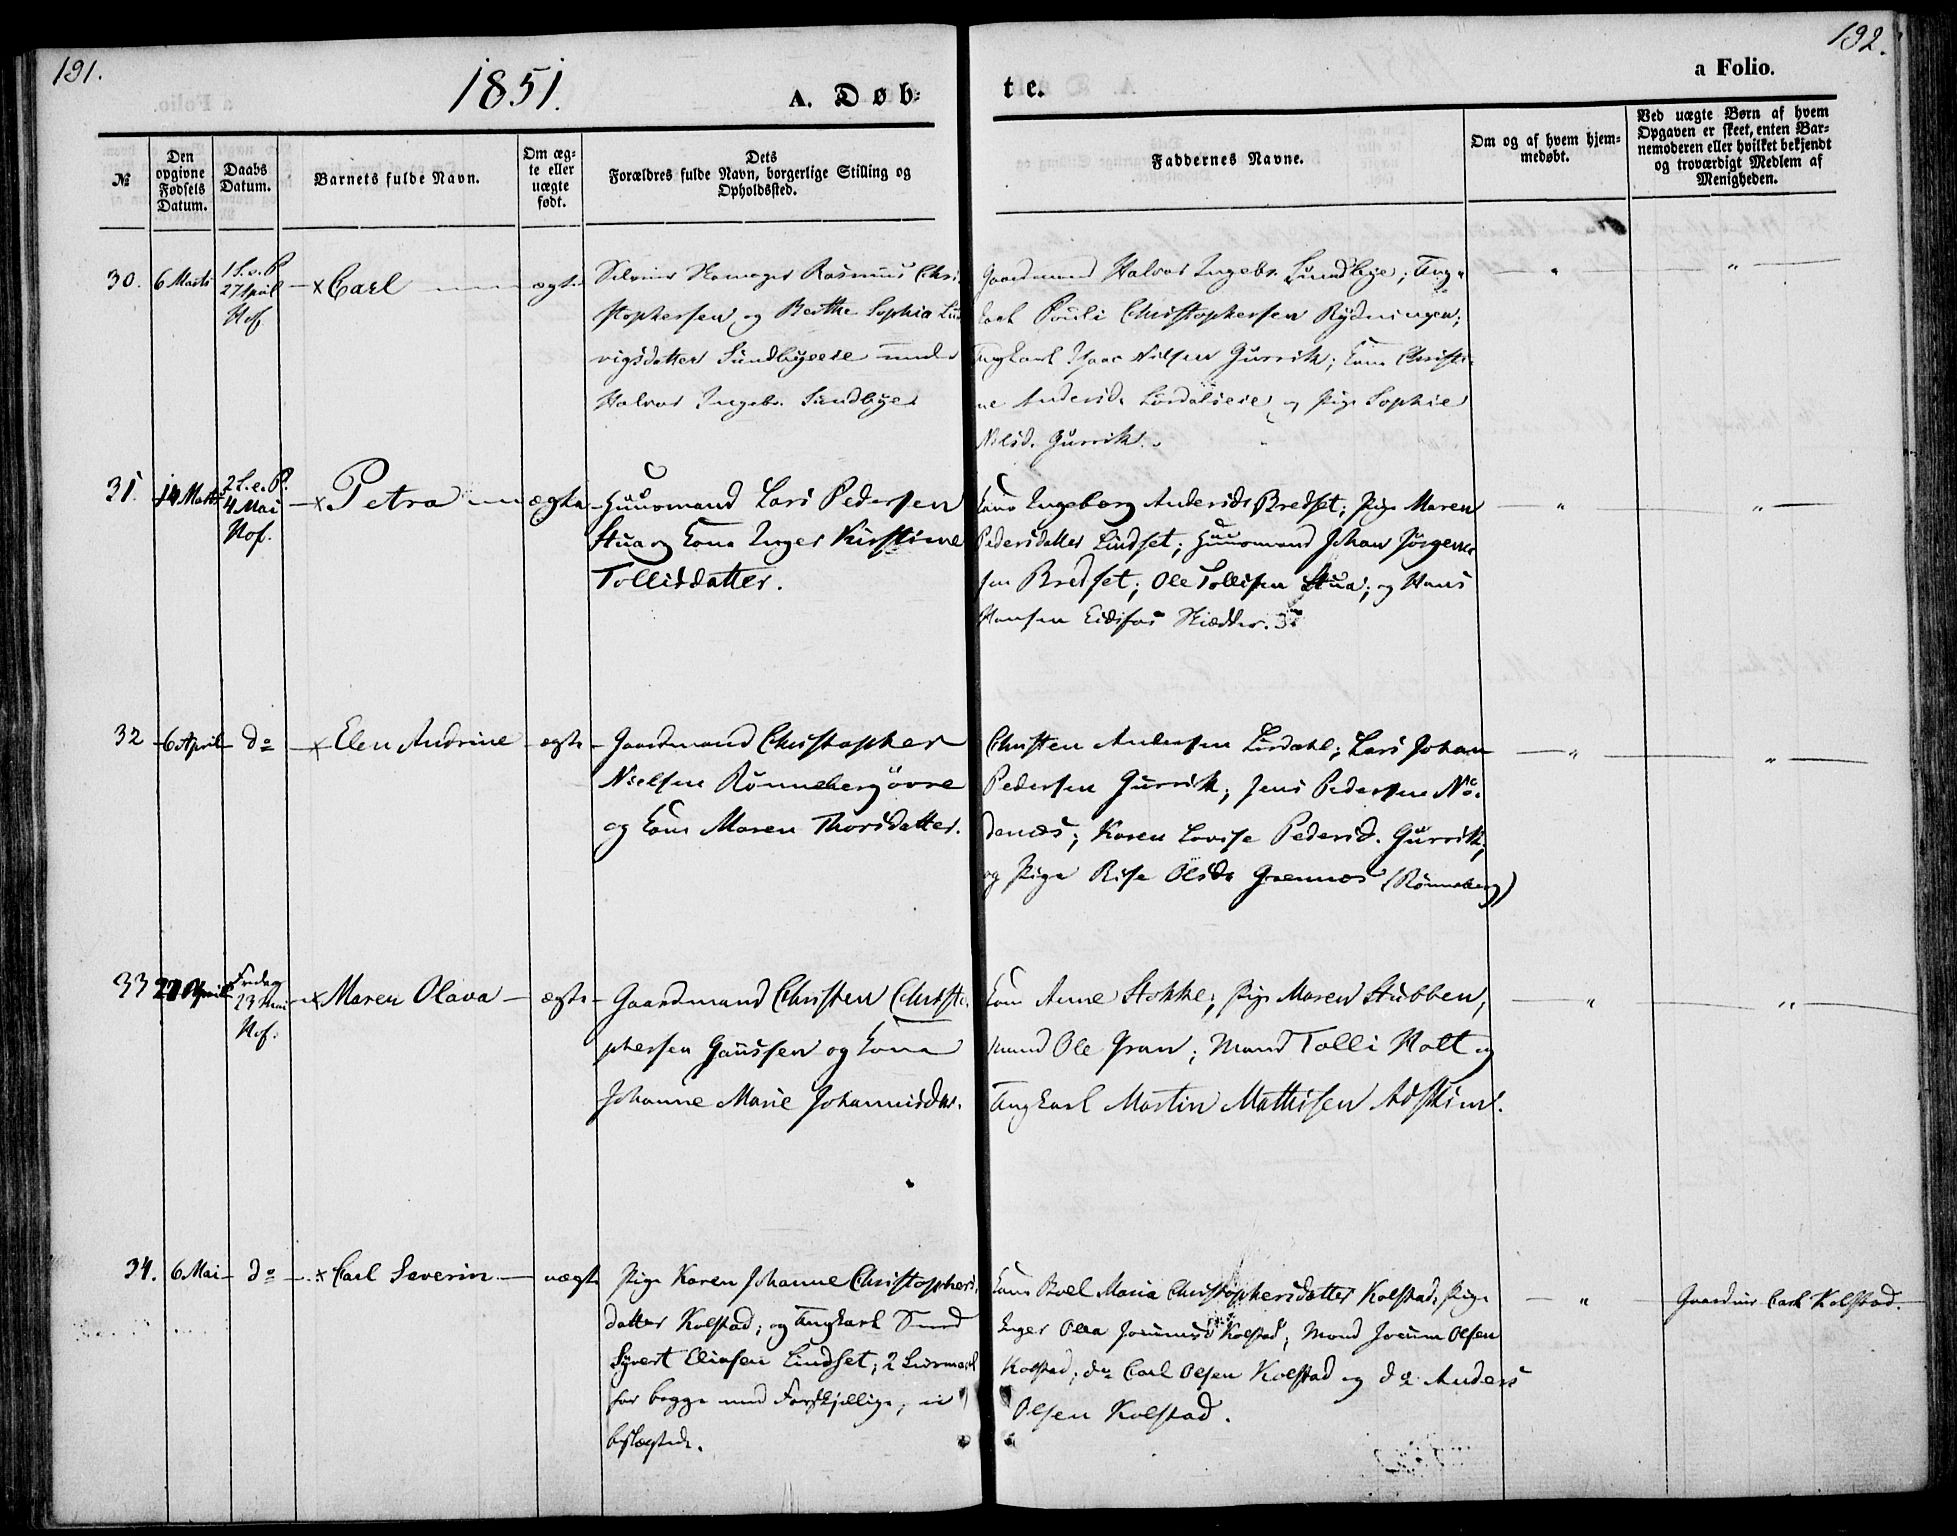 191.
1851.
A. Døb-
te.
192.
a Folio.
№
Den opgivne Fødsels Datum.
Daabs Datum.
Barnets fulde Navn.
Om ægte eller uægte født.
Dets Forældres fulde Navn, borgerlige Stilling og Opholdssted.
Faddernes Navne.
Om og af hvem hjemmedøbt.
Ved uægte Børn af hvem Opgaven er skeet, enten Barnemoderen eller hvilket bekjendt og troværdigt Medlem af Menigheden.
30.
6 Marts
1 S. e. P.
27 April
Hof
x Carl
ægte
Rasmus Chri
stophersen og Berthe Sophia Lud
vigsdatter Sundbyeeie under
Halvor Ingebr. Sundbye
Gaardmand Halvor Ingebr. Sundbye; Ung-
karl Pouli Christophersen Rydningen;
Ungkarl Isaac Nilsen Gurrik; Kone Christi-
ne Andersd. Lördalseie og Pige Sophie
Nilsd. Gurrik.
31.
14 Marts
2 S. e. P.
4 Mai
Hof.
x Petra
ægte
Huusmand Lars Pedersen
Stua og Kone Inger Kirstine
Tollisdatter.
Kone Ingeborg Andersdr Bredset; Pige Maren
Pedersdatter Lindset; Huusmand Johan Jörgen-
sen Bredset; Ole Tollisen Stua; og Hans
Hansen Eidsfos
32
6 April
do
x Elen Andrine
ægte
Gaardmand Christopher
Nielsen Rönneberg övre
og Kone Maren Thorsdatter.
Christen Andersen Lördahl; Lars Johan
Pedersen Gurrik; Jens Pedersen No-
denæs; Karen Lovise Pedersd. Gurrik;
og Pige Rise Olsdr Grennes (Rönneberg)
33
27 April
Fredag
23 Mai
Hof.
x Maren Olava
ægte
Gaardmand Christen Christo-
phersen Gaussen og Kone
Johanne Marie Johannisdtr.
Kone Anne Stokke; Pige Maren Stubben;
Mand Ole Gran; Mand Tolli Holt og
Ungkarl Martin Mathisen Adskim.
34.
6 Mai
do
x Carl Severin
uægte
Pige Karen Johanne Christophers-
datter Kolstad; og Ungkarl Smed
Syvert Eliasen Lindset; 2 Leiermaal
for begge med Forskjellige, ei
beslægtede.
Kone Boel Maria Christophersdatter Kolstad; Pige
Inger Olea Jocumsd Kolstad; Mand Jocum Olsen
Kolstad; do Carl Olsen Kolstad og do Anders
Olsen Kolstad.
Gaardmr Carl Kolstad.